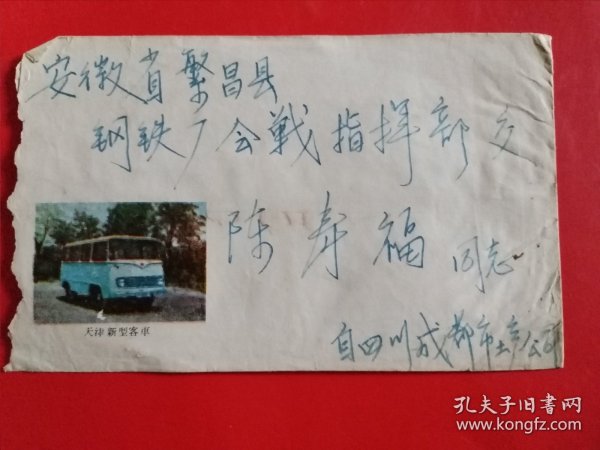 安徽省繁昌县
钢铁厂会戰指挥部交
陈寿福 同志
天津新型客車
自四川成都市土产公司
孔夫子旧书网
www.kongfz.com